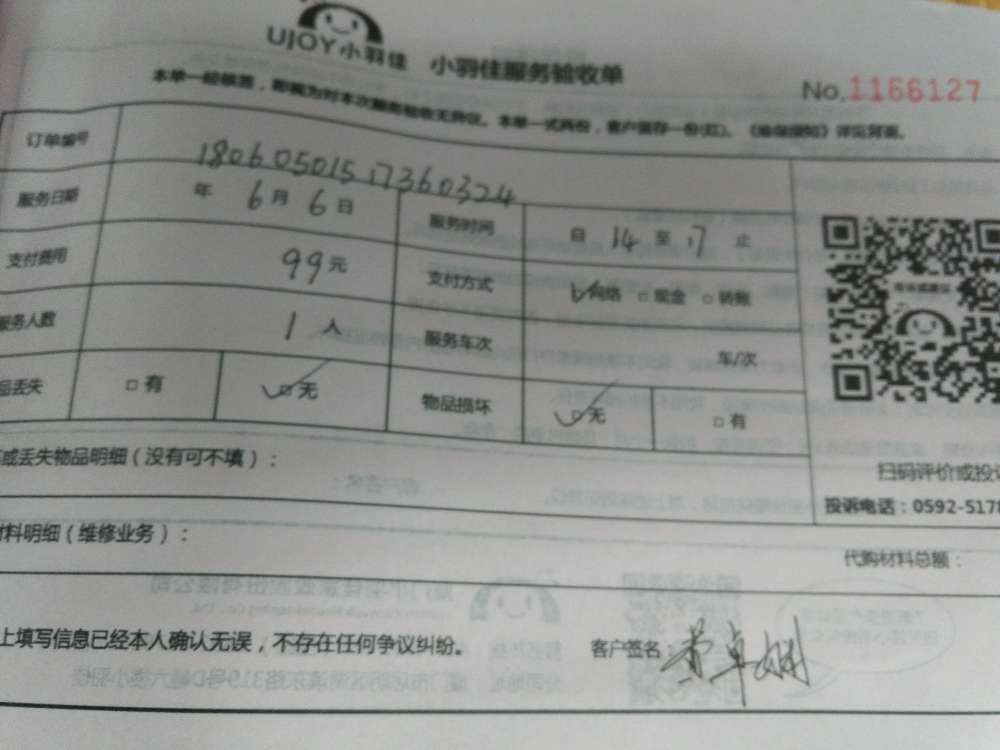 UJOY小羽佳 小羽佳服务验收单
No.1166127
本单一经核签，即视为对本次服务验收无异议。本单一式两份，客户留存一份(红)。《验收须知》详见背面。
订单编号 18060501517360324
服务日期 年 6 月 6 日 服务时间 自 14 至 17 止
支付费用 99 元 支付方式 ☑网络 □现金 □转账
服务人数 1 人 服务车次 车/次
品丢失 □有 ☑无 物品损坏 ☑无 □有
或丢失物品明细（没有可不填）：
扫码评价或投诉
投诉电话：0592-5178
材料明细（维修业务）：
代购材料总额：
上填写信息已经本人确认无误，不存在任何争议纠纷。 客户签名：